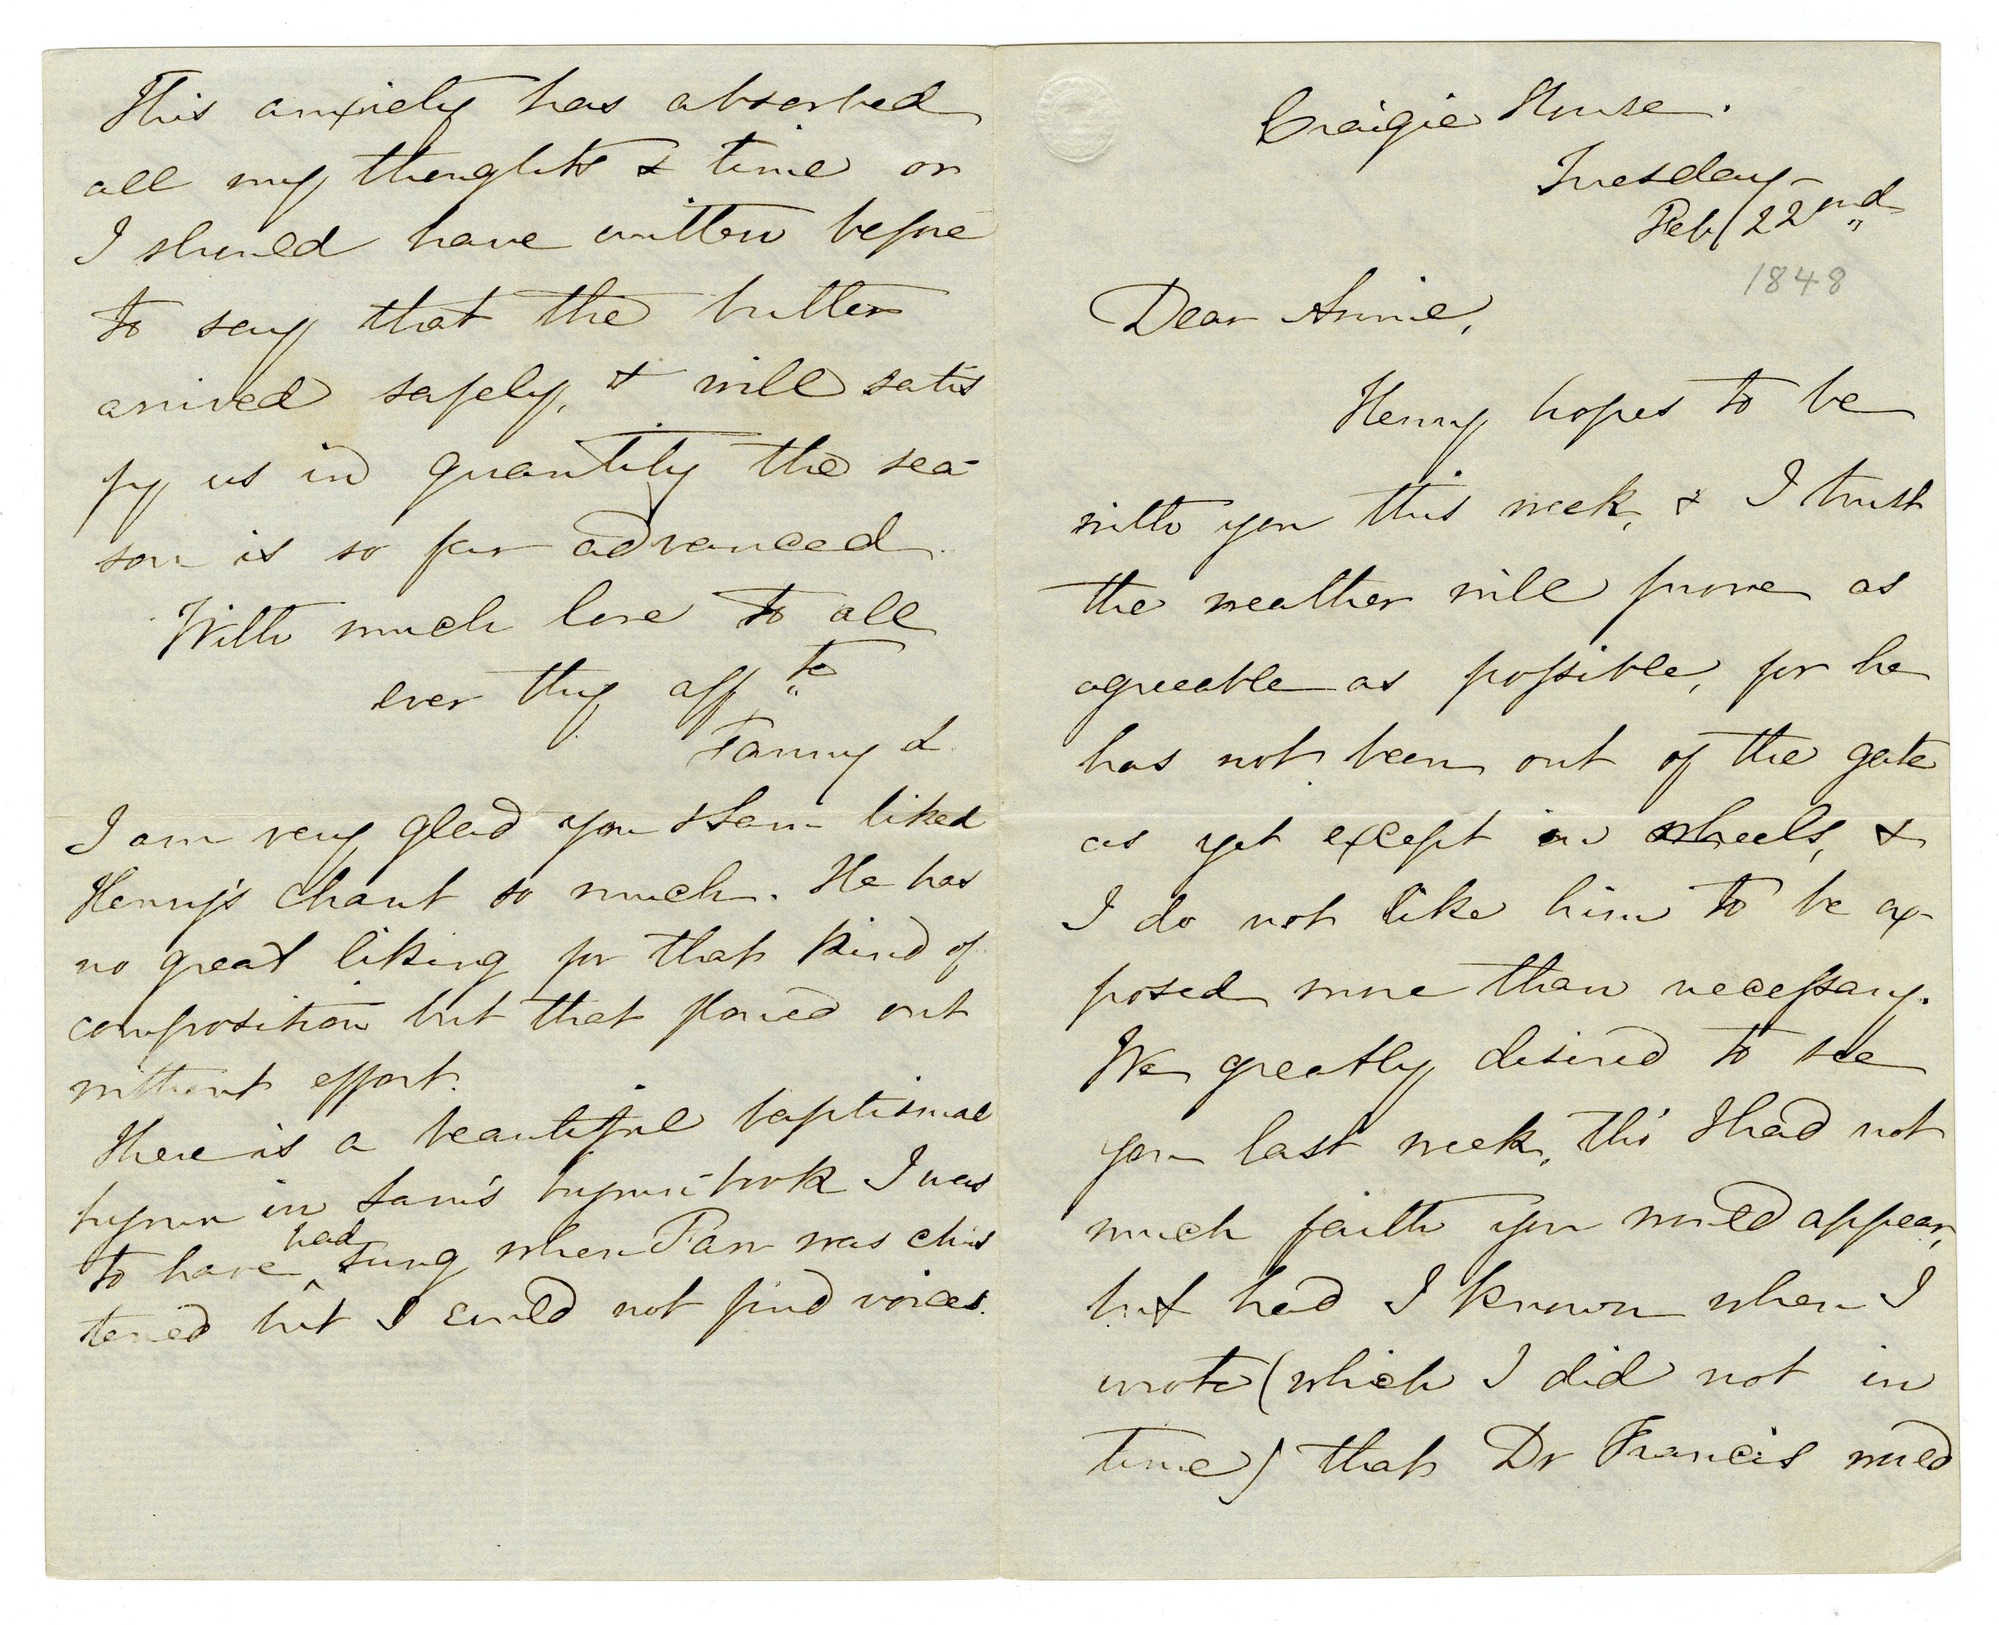 Craigie House.
Tuesday -
Feb 22nd
1848
Dear Annie,
Henry hopes to be
with you this week, & I trust
the weather will prove as
agreeable as possible, for he
has not been out of the gate
as yet except on wheels, &
I do not like him to be ex-
posed more than necessary.
We greatly desired to see
you last week, tho' I had not
much faith you would appear,
but had I known when I
wrote (which I did not in
time) that Dr Francis would
This anxiety has absorbed
all my thoughts & time or
I should have written before
to say that the butter
arrived safely, & will satis
fy us in quantity the sea-
son is so far advanced.
With much love to all
ever thy affte
Fanny L.
I am very glad you & Sam liked
Henry's chant so much. He has
no great liking for that kind of
composition but that flowed out
without effort.
There is a beautiful baptismal
hymn in Sam's hymn-book I was
to have had sung when Fan was chris
tened but I could not find voices.